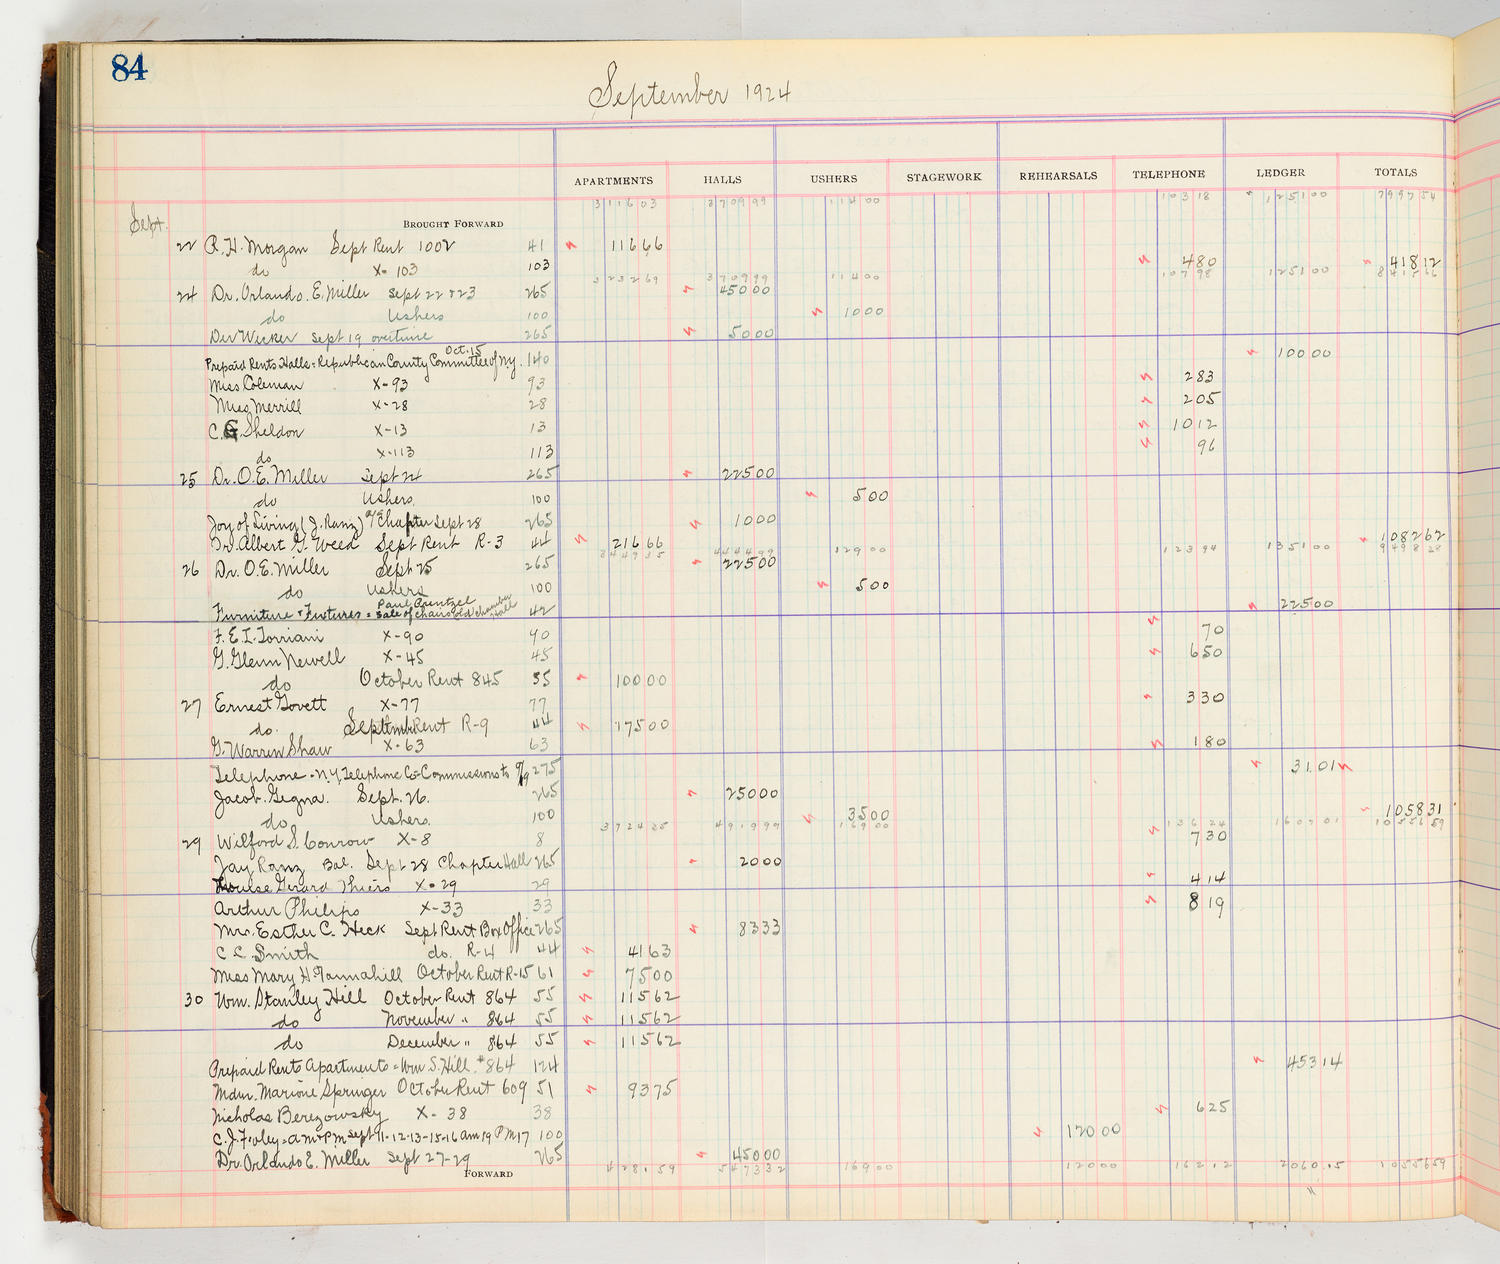 84
September 1924
APARTMENTS HALLS USHERS STAGEWORK REHEARSALS TELEPHONE LEDGER TOTALS
311603 370999 11400 10318 125100 799754
Sept. BROUGHT FORWARD
22 R. H. Morgan Sept Rent 1002 41 11666
do X-103 103 480 41812
323269 370999 11400 10798 125100 841566
24 Dr. Orlando. E. Miller Sept 22 & 23 265 45000
do Ushers 100 1000
Der Wecker Sept 19 overtime 265 5000
Prepaid Rents Halls = Republican County Committee of N.Y. Oct. 15 140 10000
Miss Coleman X-93 93 283
Miss Merrill X-28 28 205
C. G. Sheldon X-13 13 1012
do X-113 113 96
25 Dr. O. E. Miller Sept 24 265 22500
do Ushers 100 500
Joy of Living (J. Ranz) a/c Chapter Sept 28 265 1000
Dr. Albert G. Weed Sept Rent R-3 44 21666 108262
344935 444499 12900 12394 135100 949828
26 Dr. O. E. Miller Sept 25 265 22500
do Ushers 100 500
Furniture & Fixtures = Sale of chairs old chamber hall Paul Prentzel 42 22500
F. E. I. Torriani X-90 90 70
G. Glenn Newell X-45 45 650
do October Rent 845 55 10000
27 Ernest Govett X-77 77 330
do. September Rent R-9 44 17500
G. Warren Shaw X-63 63 180
Telephone - N.Y. Telephone Co - Commissions to 9/9 275 31.01
Jacob Gegna. Sept. 26. 265 25000
do. Ushers. 100 3500 105831
372435 491999 16900 13624 160701 1055659
29 Wilford S. Conrow X-8 8 730
Jay Ranz Bal. Sept 28 Chapter Hall 265 2000
Louise Gerard Thiers X-29 29 414
Arthur Philips X-33 33 819
Mrs. Esther C. Heck Sept Rent Box Office 265 8333
C C. Smith do. R-4 44 4163
Miss Mary H. Tannahill October Rent R-15 61 7500
30 Wm. Stanley Hill October Rent 864 55 11562
do November " 864 55 11562
do December " 864 55 11562
Prepaid Rents Apartments = Wm S. Hill. #864 124 45314
Mdm. Marione Springer October Rent 609 51 9375
Nicholas Berezowsky X-38 38 625
C. J. Foley = am & Pm Sept 11-12-13-15-16 am 19 PM 17 100 12000
Dr. Orlando E. Miller Sept 27-29 265 45000
FORWARD 428159 547332 16900 12000 16212 206015 1055659